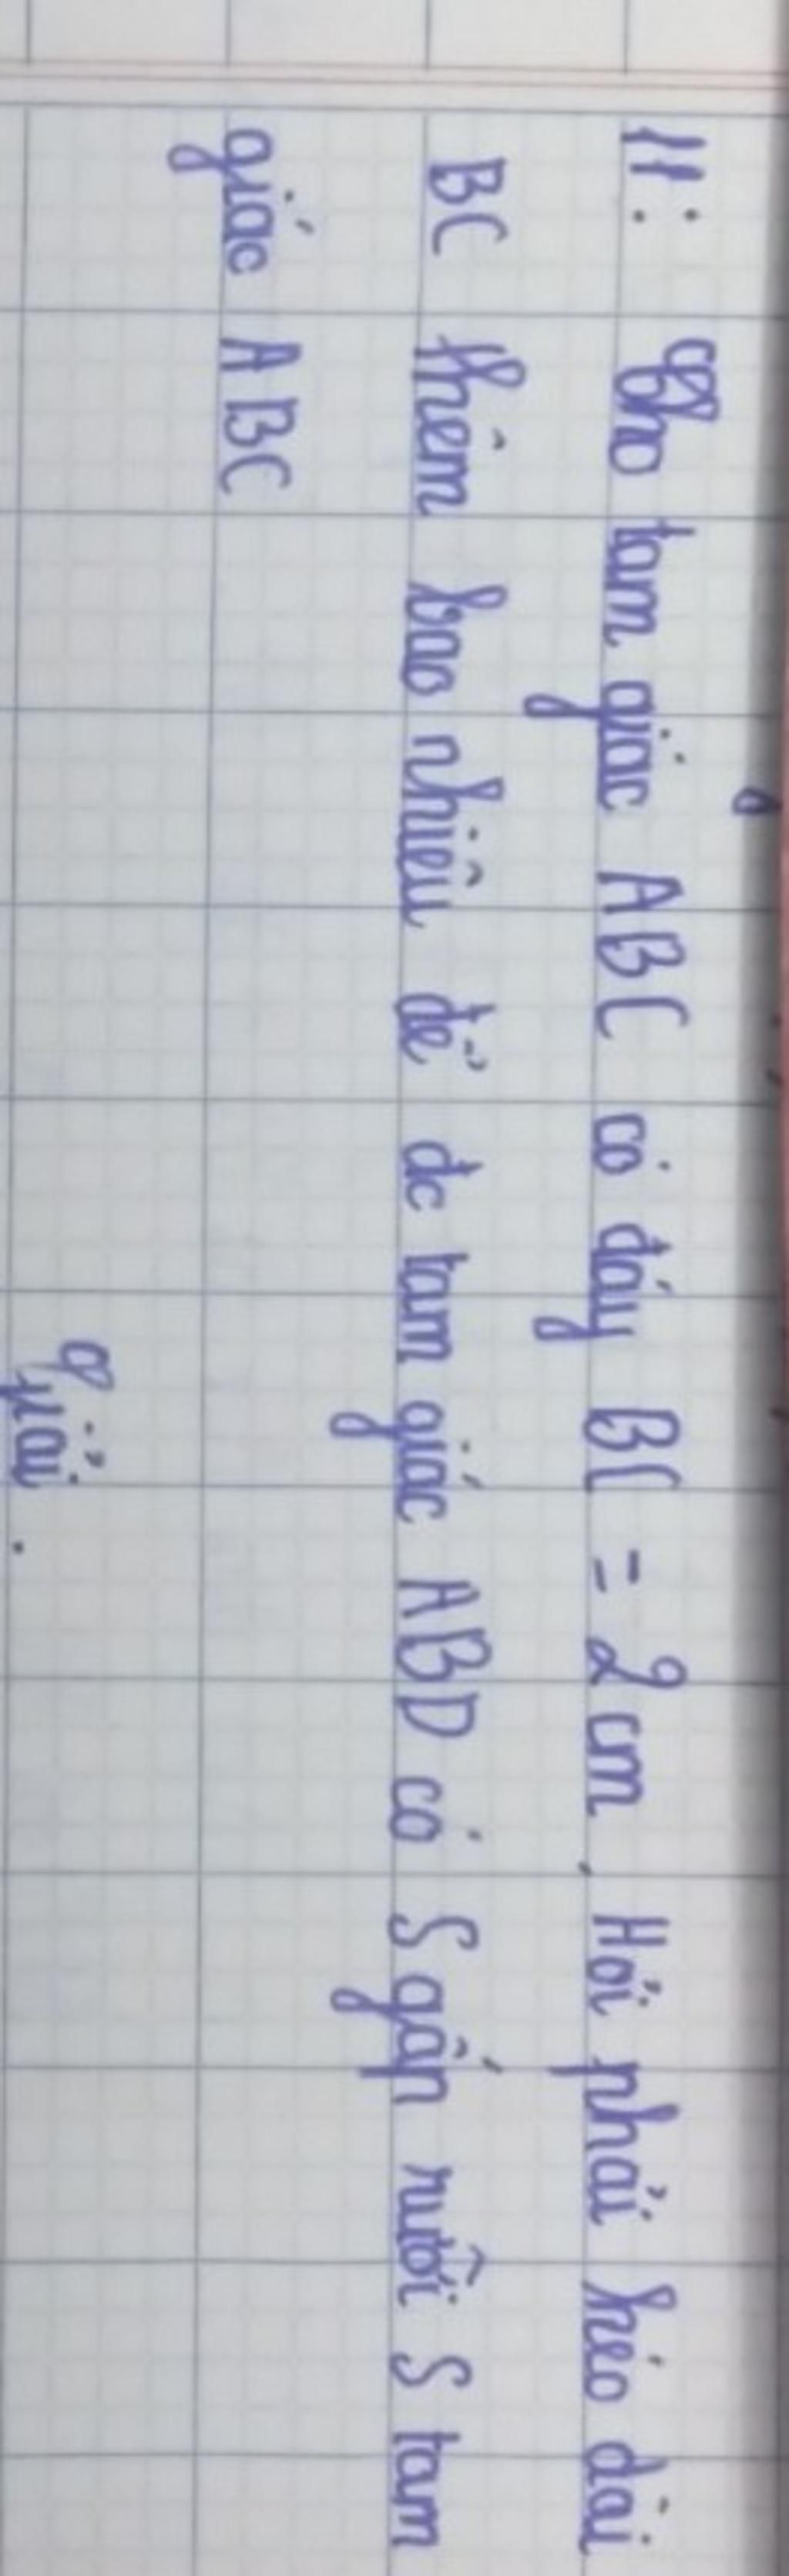 11: Cho tam giác ABC có đáy BC = 2 cm, Hỏi phải kéo dài
BC thêm bao nhiêu để đc tam giác ABD có S gấp rưỡi S tam
giác ABC
Giải.